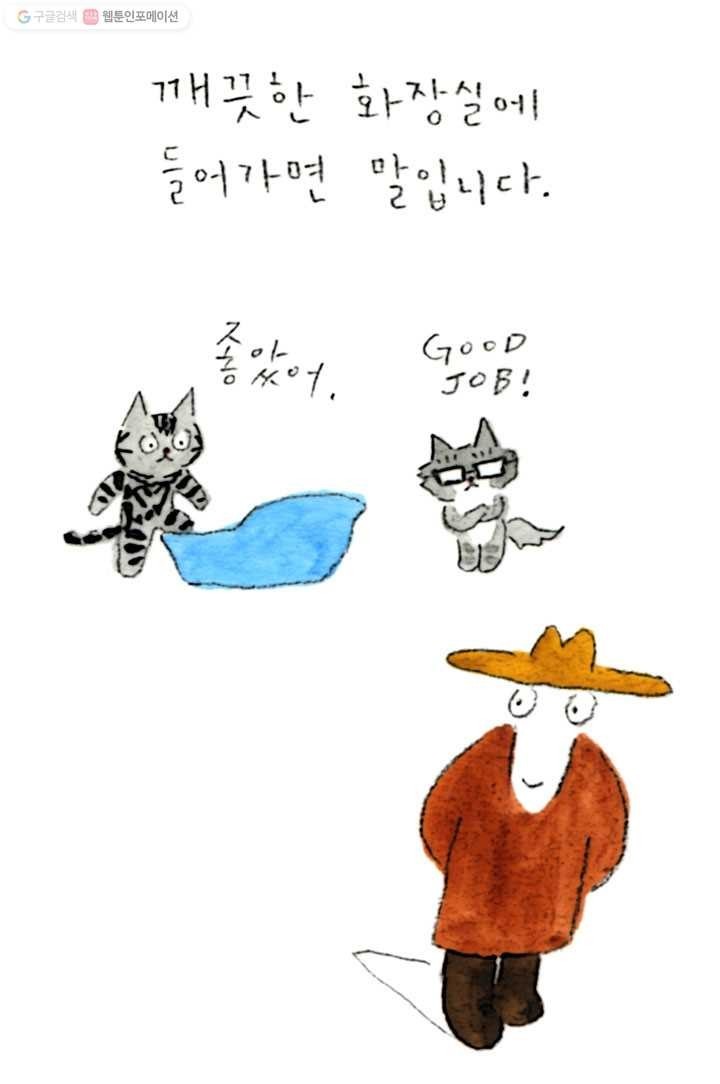 구글검색 웹툰인포메이션
깨끗한 화장실에
들어가면 말입니다.
좋았어.
GOOD
JOB!